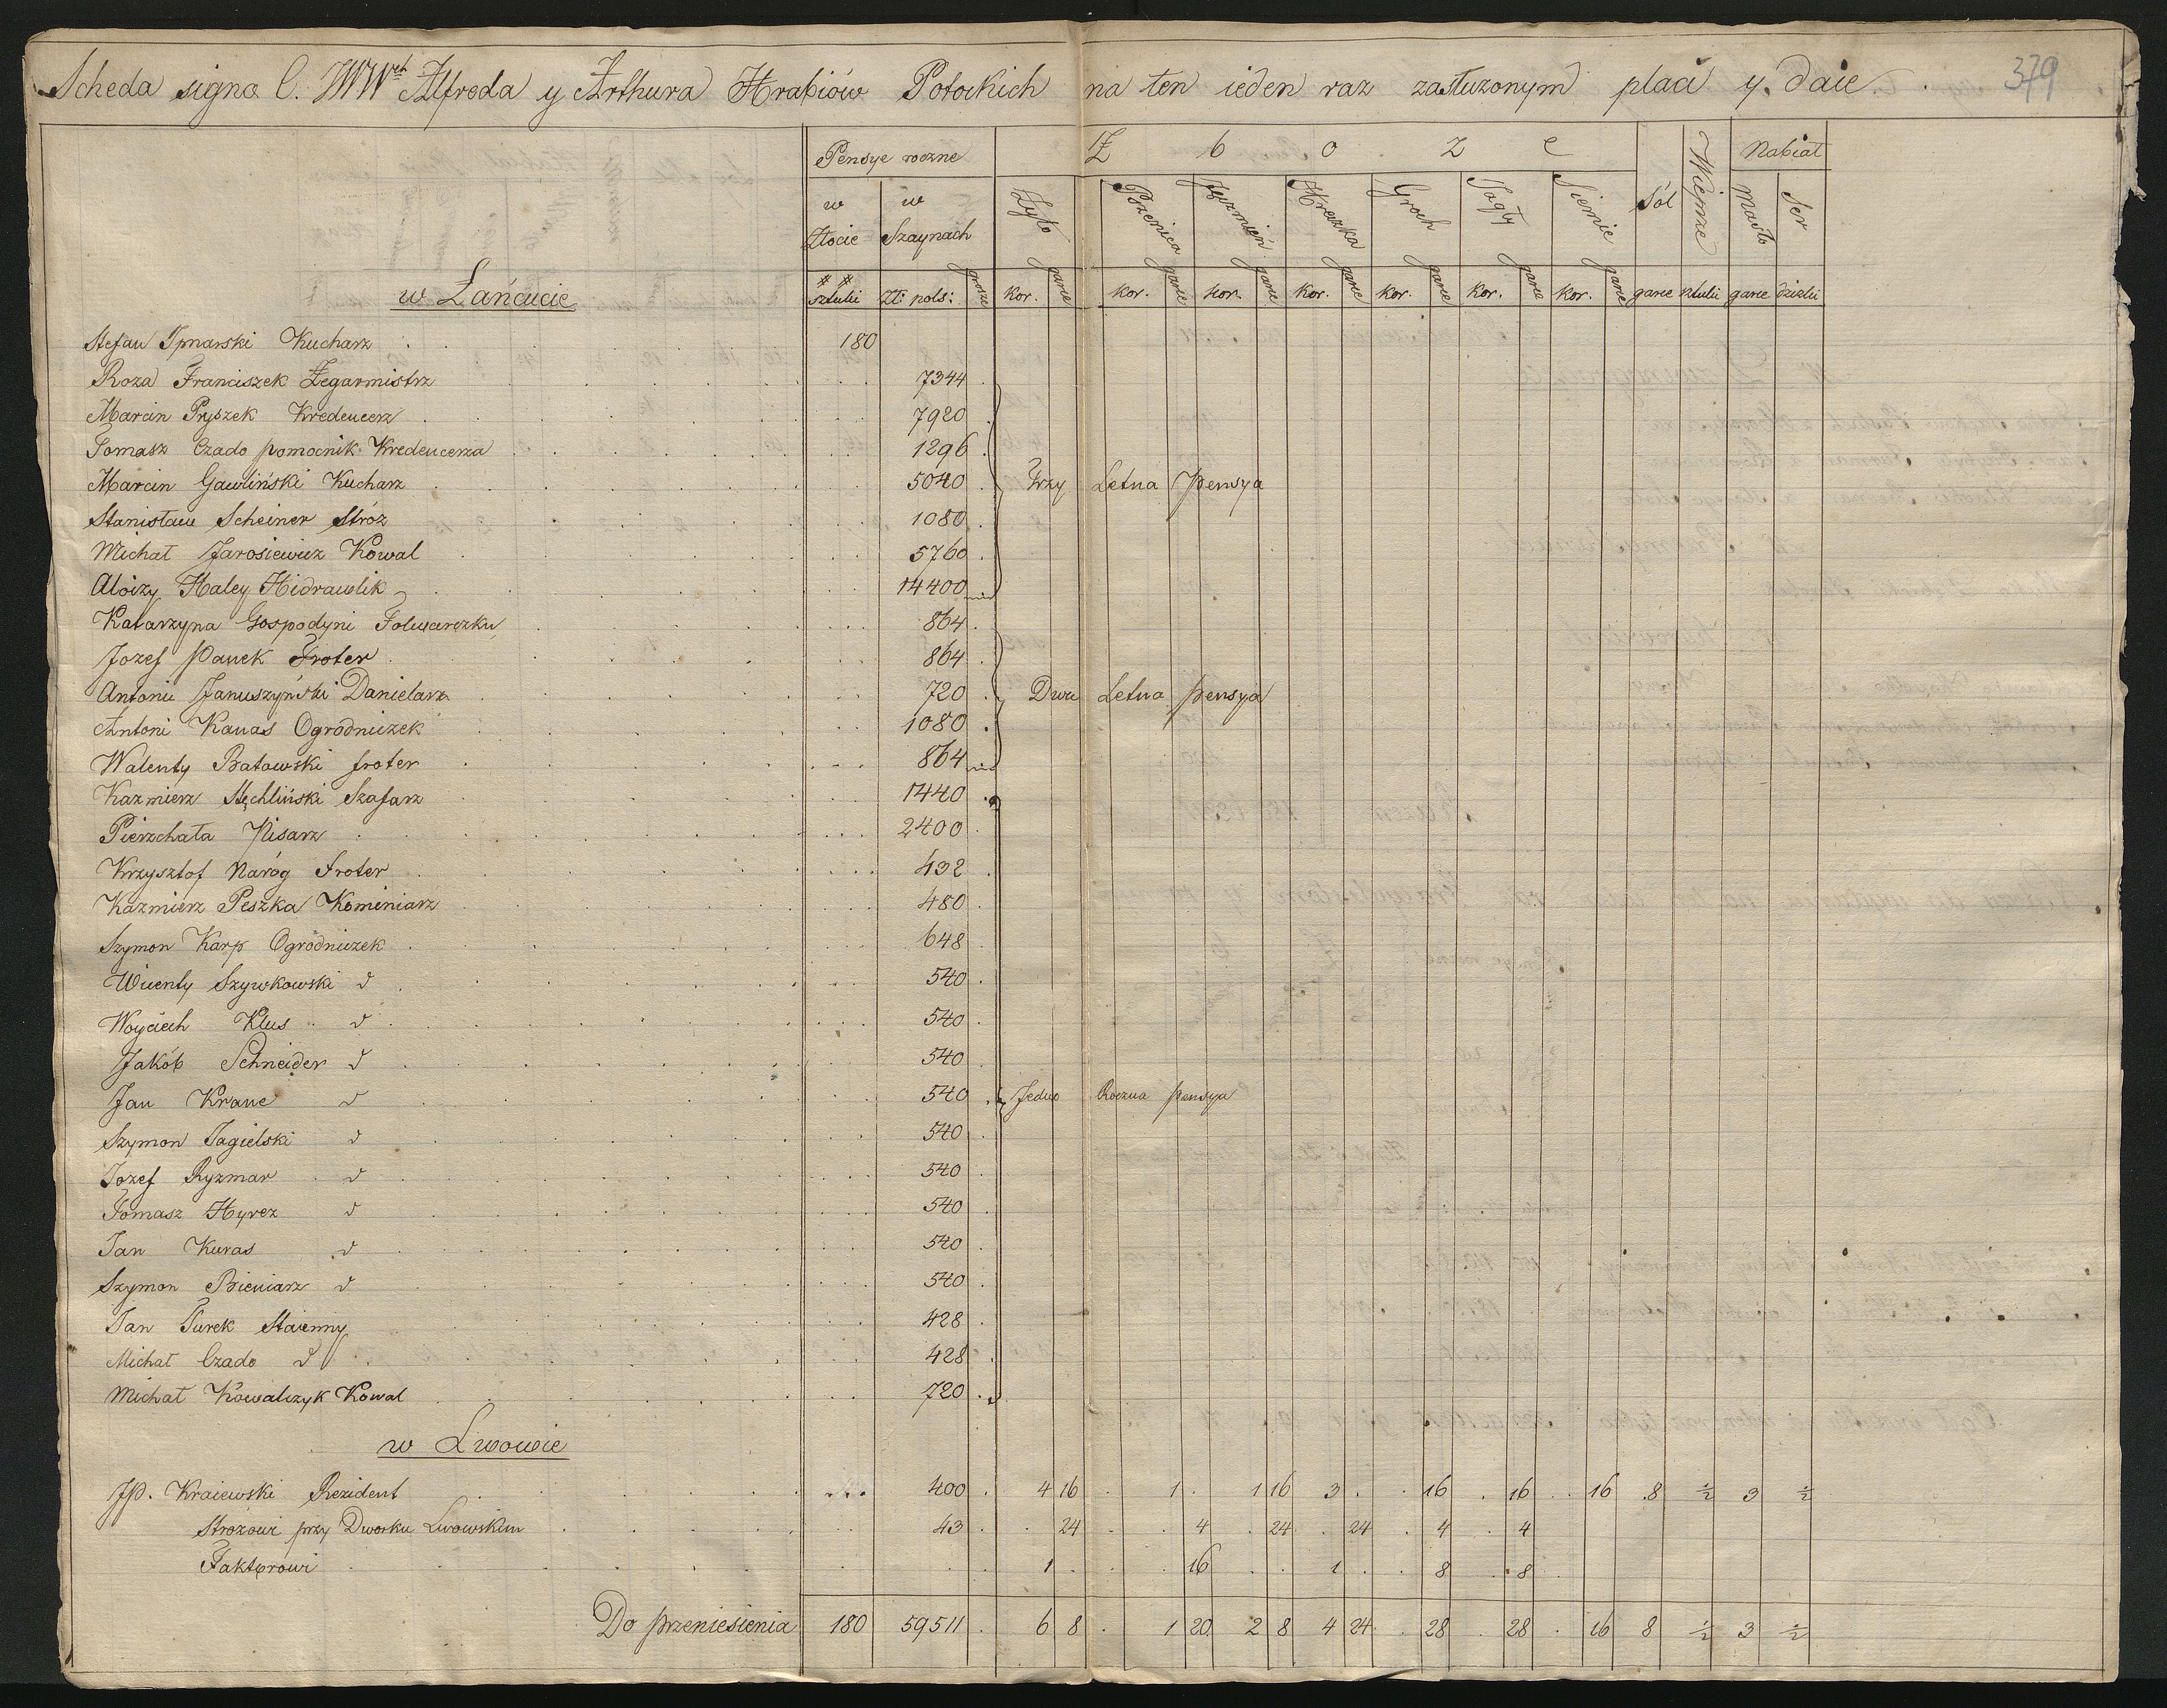 379
Scheda signo C. JWWch Alfreda y Arthura Hrabiów Potockich na ten ieden raz zasłużonym płaci y daie
Pensye roczne Z b o ż e Sól Wieprze Nabiał
w Złocie w Szaynach Żyto Pszenica Jęczmień Hreczka Groch Jagły Siemie Masło Ser
sztuki zł: pols: grosze kor. garce kor. garce kor. garce kor. garce kor. garce kor. garce kor. garce garce sztuki garce dzieżki
w Łańcucie
Stefan Kucharz 180
Roza Franciszek Zegarmistrz 7344
Marcin Pryszek Kredencerz 7920
Tomasz Czado pomocnik Kredencerza 1296
Marcin Gawliński Kucharz 5040 Trzy Letna Pensya
Stanisław Scheiner Stróz 1080
Michał Jarosiewicz Kowal 5760
Aloizy Haley Hidrawlik 14400
Katarzyna Gospodyni Folwarczku 864
Jozef Panek Froter 864
Antoni Januszyński Danielarz 720 Dwu Letna pensya
Antoni Kanas Ogrodniczek 1080
Walenty Batowski froter 864
Kazmierz Stęchliński Szafarz 1440
Pierzchała Pisarz 2400
Krzysztof Naróg Froter 432
Kazmierz Peszka Kominiarz 480
Szymon Karp Ogrodniczek 648
Wicenty Szywkowski d 540
Woyciech Klus d 540
Jakób Schneider d 540
Jan Krane d 540 Jedno Roczna pensya
Szymon Jagielski d 540
Jozef Ryzmar d 540
Tomasz Hyrcz d 540
Jan Kuras d 540
Szymon Bieniarz d 540
Jan Turek Staienny 428
Michał Czado d 428
Michał Kowalczyk Kowal 720
w Lwowie
JP. Kraiewski Rezident 400 4 16 1 1 16 3 16 16 16 8 ½ 3 ½
Strozowi przy Dworku Lwowskim 43 24 4 24 24 4 4
Faktorowi 1 16 1 8 8
Do przeniesienia 180 59511 6 8 1 20 2 8 4 24 28 28 16 8 ½ 3 ½